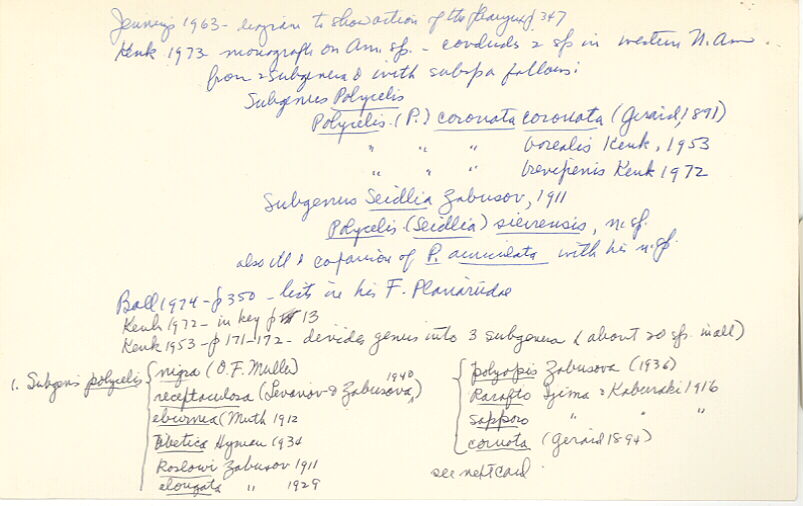 Jennings 1963 - diagram to show action of the pharynx p 347
Kenk 1973 - monograph on Am. sp. - conduds 2 sp in western N. Am.
from 2 subgenera & with subspp as follows:
Subgenus Polycelis
Polycelis (P.) coronata coronata (Gerard, 1891)
" " " borealis Kenk, 1953
" " " brevipenis Kenk 1972
Subgenus Seidlia Zabusov, 1911
Polycelis (Seidlia) sierrensis, n. sp.
also ill & comparison of P. auriculata with his n. sp.
Ball 1974 - p 350 - lists in his F. Planariidae
Kenk 1972 - in key p 13
Kenk 1953 - p 171-172 - divides genus into 3 subgenera (about 20 sp. in all)
1. Subgenis polycelis { nigra (O.F. Muller)
receptaculosa (Levanov & Zabusova, 1940)
eburnea (Muth 1912
Tibetica Hyman 1934
Koslowi Zabusov 1911
elongata " 1929
{ polyopis Zabusova (1936)
Rarafto Ijima & Kaburaki 1916
sapporo " " "
cornata (Gerard 1894)
see next card